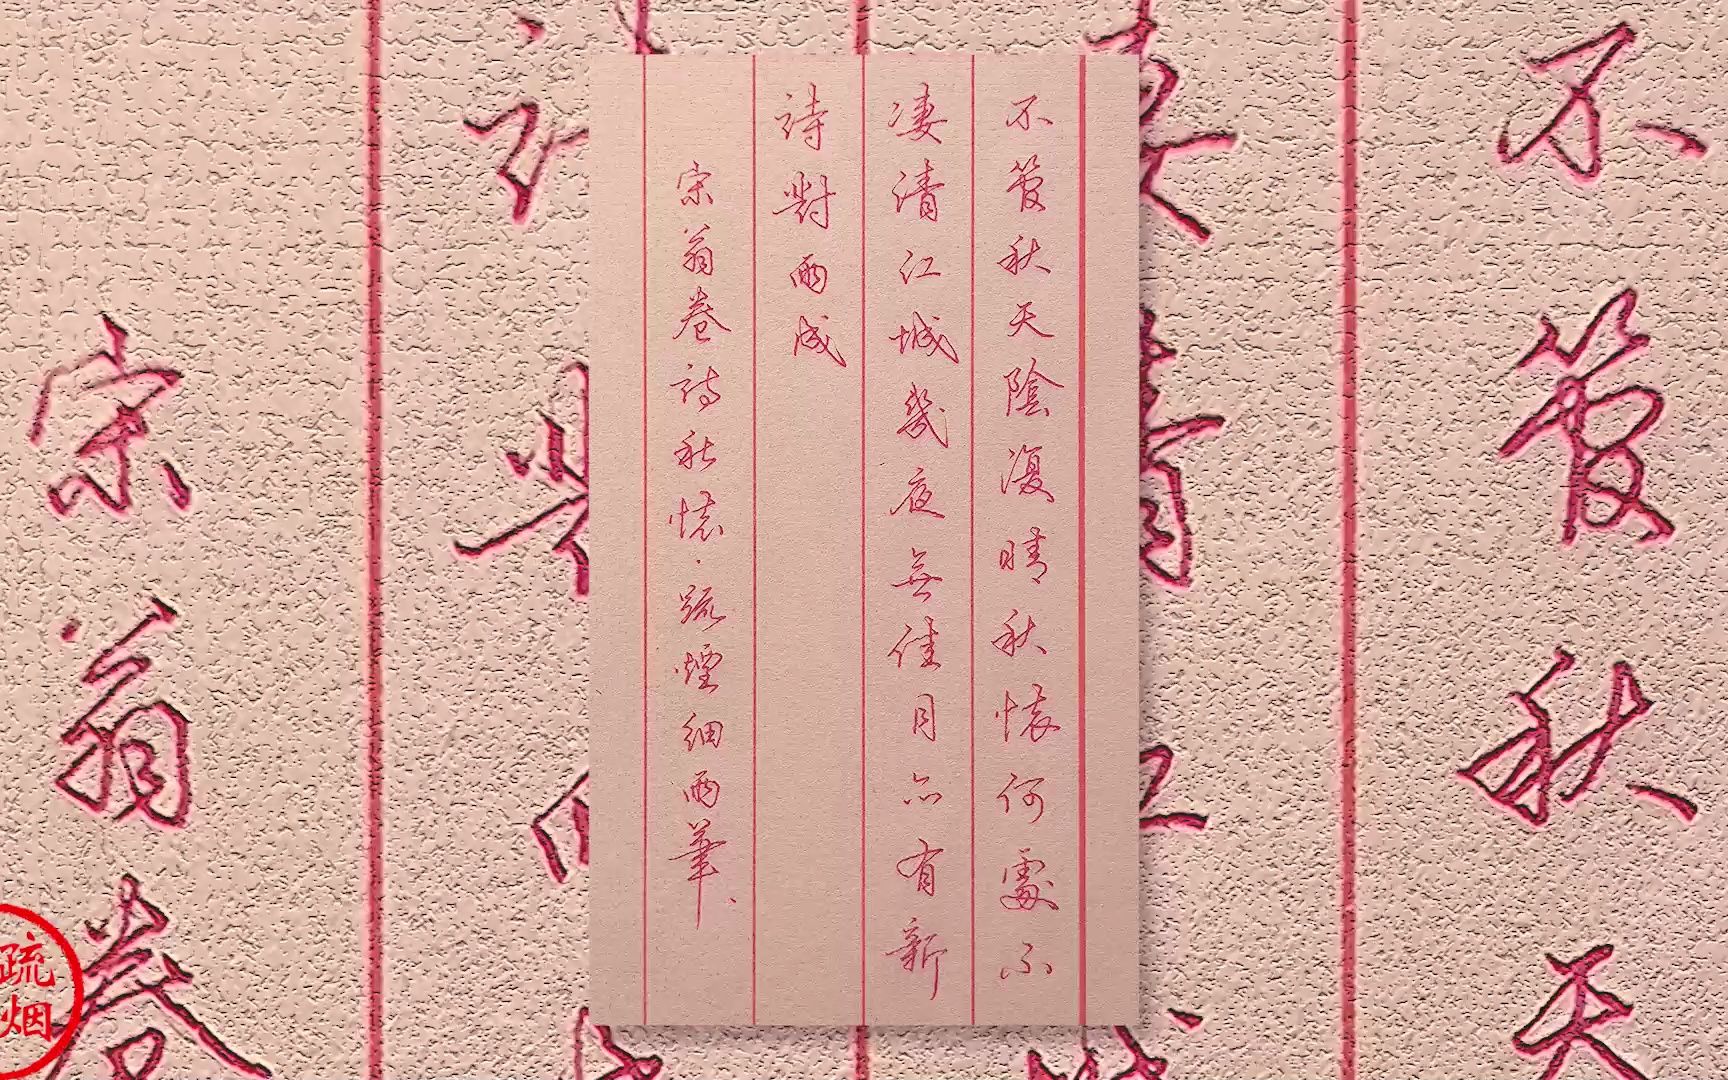 不管秋天陰復晴秋懷何處不
凄清江城幾夜無佳月亦有新
詩對雨成
宋翁卷詩秋懷·疏煙細雨筆
不管秋天
宋翁卷
疏烟